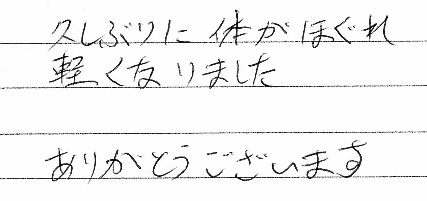 久しぶりに体がほぐれ
軽くなりました
ありがとうございます